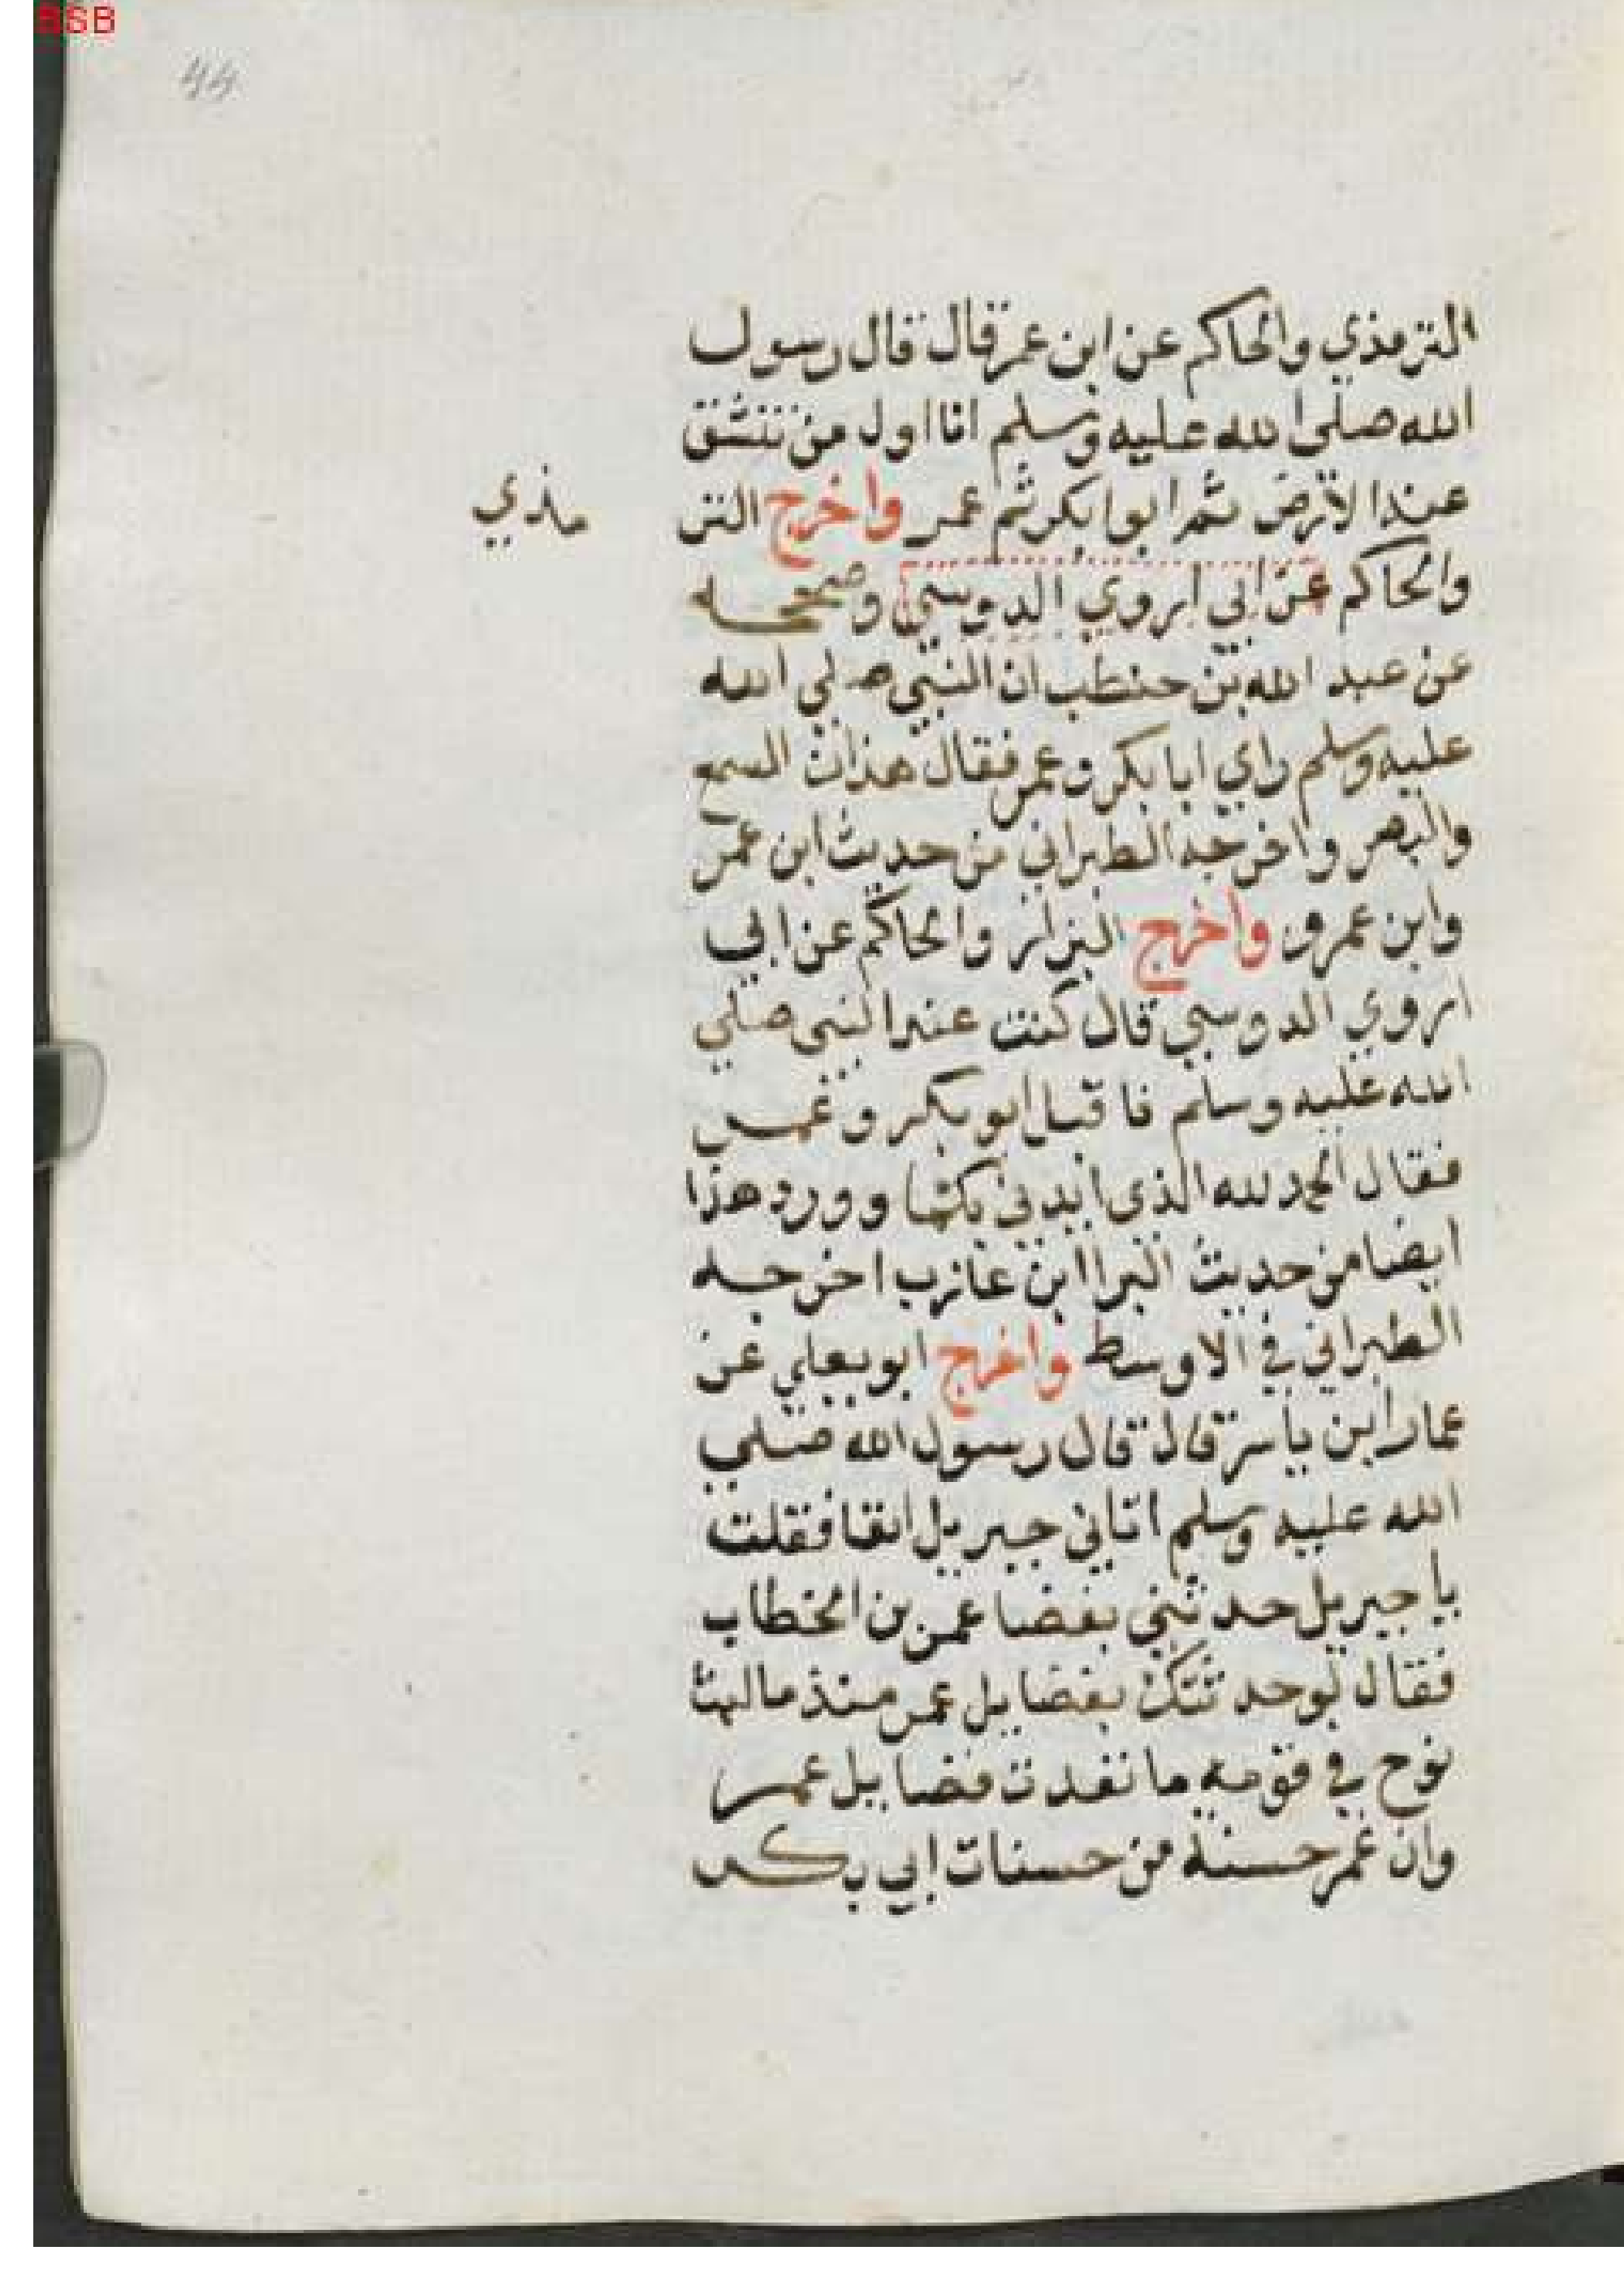 BSB
44
الترمذي والحاكم عن ابن عمر قال قال رسول
الله صلى الله عليه وسلم انا اول من تنشق
عندا الارض ثم ابوا بكر ثم عمر واخرج التر
مذي
والحاكم عن ابي اروي الدوسي وصححه
عن عبد الله بن حنطب ان النبي صلي الله
عليه وسلم راي ابا بكر وعمر فقال هذان السمع
والبصر واخرجه الطبراني من حديث ابن عمر
وابن عمرو واخرج البزار والحاكم عن ابي
اروي الدوسي قال كنت عند النبي صلي
الله عليه وسلم فاقبل ابو بكر وعمر
فقال الحمد لله الذي ايدني بكما وورد هذا
ايضا من حديث البرا ابن عازب اخرجه
الطبراني في الاوسط واخرج ابو يعلي عن
عمار ابن ياسر قال قال رسول الله صلي
الله عليه وسلم اتاني جبريل انفا فقلت
يا جبريل حدثني بفضا عمر بن الخطاب
فقال لو حدثتك بفضايل عمر منذ ما لبث
نوح في قومه ما نفدت فضايل عمر
وان عمر حسنة من حسنات ابي بكر